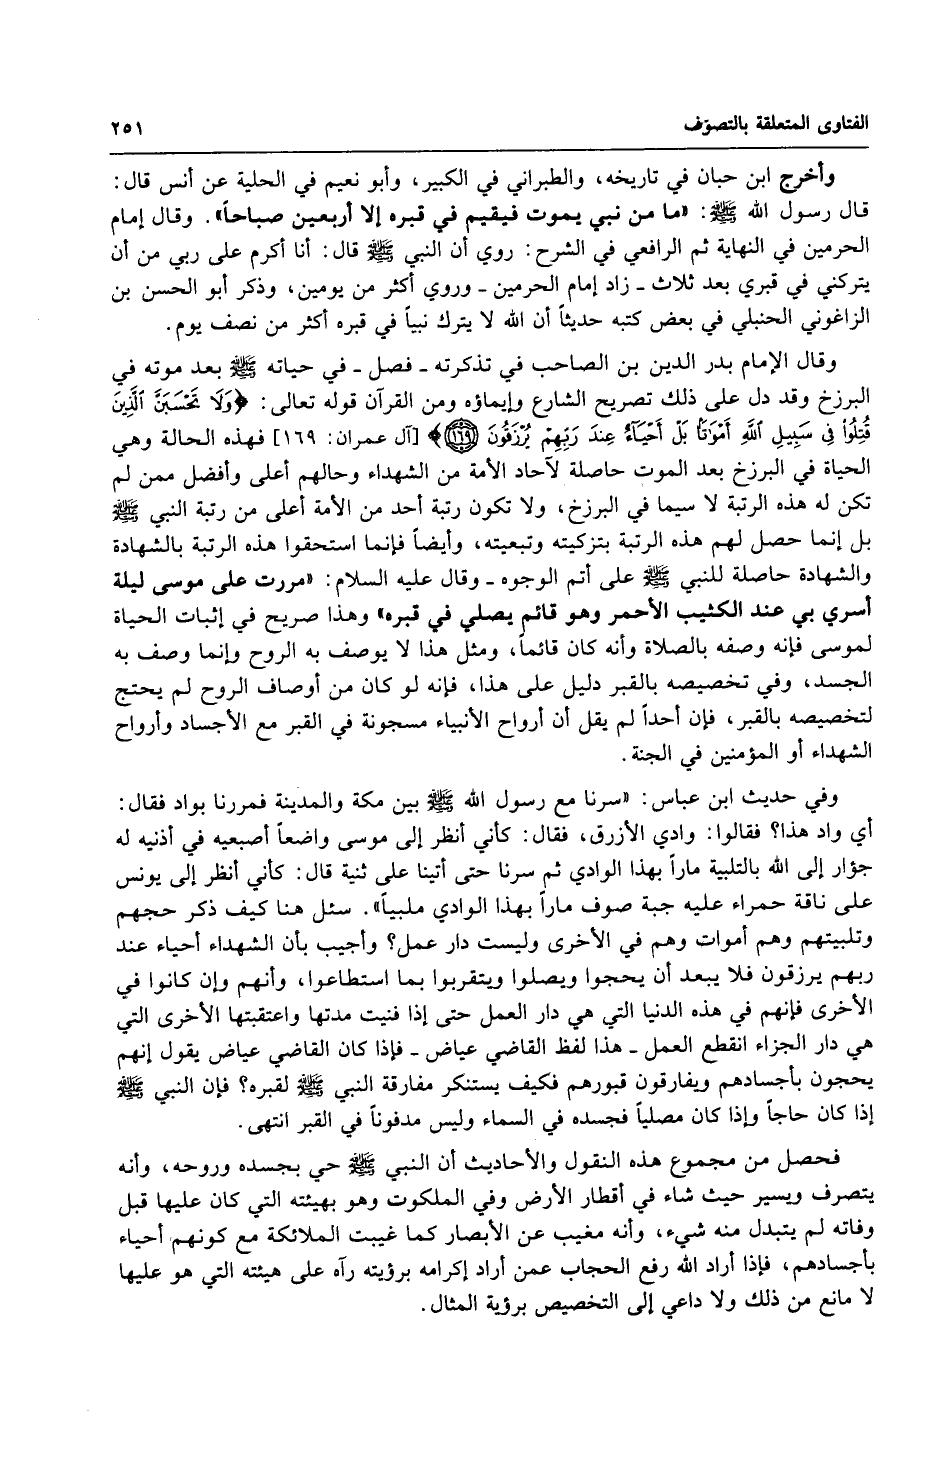 الفتاوى المتعلقة بالتصوّف ٢٥١
وأخرج ابن حبان في تاريخه، والطبراني في الكبير، وأبو نعيم في الحلية عن أنس قال:
قال رسول الله ﷺ: «ما من نبي يموت فيقيم في قبره إلا أربعين صباحاً». وقال إمام
الحرمين في النهاية ثم الرافعي في الشرح: روي أن النبي ﷺ قال: أنا أكرم على ربي من أن
يتركني في قبري بعد ثلاث ـ زاد إمام الحرمين ـ وروي أكثر من يومين، وذكر أبو الحسن بن
الزاغوني الحنبلي في بعض كتبه حديثاً أن الله لا يترك نبياً في قبره أكثر من نصف يوم.
وقال الإمام بدر الدين بن الصاحب في تذكرته ـ فصل ـ في حياته ﷺ بعد موته في
البرزخ وقد دل على ذلك تصريح الشارع وإيماؤه ومن القرآن قوله تعالى: ﴿وَلَا تَحْسَبَنَّ ٱلَّذِينَ
قُتِلُوا۟ فِى سَبِيلِ ٱللَّهِ أَمْوَٰتًۢا بَلْ أَحْيَآءٌ عِندَ رَبِّهِمْ يُرْزَقُونَ ١٦٩﴾ [آل عمران: ١٦٩] فهذه الحالة وهي
الحياة في البرزخ بعد الموت حاصلة لآحاد الأمة من الشهداء وحالهم أعلى وأفضل ممن لم
تكن له هذه الرتبة لا سيما في البرزخ، ولا تكون رتبة أحد من الأمة أعلى من رتبة النبي ﷺ
بل إنما حصل لهم هذه الرتبة بتزكيته وتبعيته، وأيضاً فإنما استحقوا هذه الرتبة بالشهادة
والشهادة حاصلة للنبي ﷺ على أتم الوجوه ـ وقال عليه السلام: «مررت على موسى ليلة
أسري بي عند الكثيب الأحمر وهو قائم يصلي في قبره» وهذا صريح في إثبات الحياة
لموسى فإنه وصفه بالصلاة وأنه كان قائماً، ومثل هذا لا يوصف به الروح وإنما وصف به
الجسد، وفي تخصيصه بالقبر دليل على هذا، فإنه لو كان من أوصاف الروح لم يحتج
لتخصيصه بالقبر، فإن أحداً لم يقل أن أرواح الأنبياء مسجونة في القبر مع الأجساد وأرواح
الشهداء أو المؤمنين في الجنة.
وفي حديث ابن عباس: «سرنا مع رسول الله ﷺ بين مكة والمدينة فمررنا بواد فقال:
أي واد هذا؟ فقالوا: وادي الأزرق، فقال: كأني أنظر إلى موسى واضعاً أصبعيه في أذنيه له
جؤار إلى الله بالتلبية ماراً بهذا الوادي ثم سرنا حتى أتينا على ثنية قال: كأني أنظر إلى يونس
على ناقة حمراء عليه جبة صوف ماراً بهذا الوادي ملبياً». سئل هنا كيف ذكر حجهم
وتلبيتهم وهم أموات وهم في الأخرى وليست دار عمل؟ وأجيب بأن الشهداء أحياء عند
ربهم يرزقون فلا يبعد أن يحجوا ويصلوا ويتقربوا بما استطاعوا، وأنهم وإن كانوا في
الأخرى فإنهم في هذه الدنيا التي هي دار العمل حتى إذا فنيت مدتها واعتقبتها الأخرى التي
هي دار الجزاء انقطع العمل ـ هذا لفظ القاضي عياض ـ فإذا كان القاضي عياض يقول إنهم
يحجون بأجسادهم ويفارقون قبورهم فكيف يستنكر مفارقة النبي ﷺ لقبره؟ فإن النبي ﷺ
إذا كان حاجاً وإذا كان مصلياً فجسده في السماء وليس مدفوناً في القبر انتهى.
فحصل من مجموع هذه النقول والأحاديث أن النبي ﷺ حي بجسده وروحه، وأنه
يتصرف ويسير حيث شاء في أقطار الأرض وفي الملكوت وهو بهيئته التي كان عليها قبل
وفاته لم يتبدل منه شيء، وأنه مغيب عن الأبصار كما غيبت الملائكة مع كونهم أحياء
بأجسادهم، فإذا أراد الله رفع الحجاب عمن أراد إكرامه برؤيته رآه على هيئته التي هو عليها
لا مانع من ذلك ولا داعي إلى التخصيص برؤية المثال.